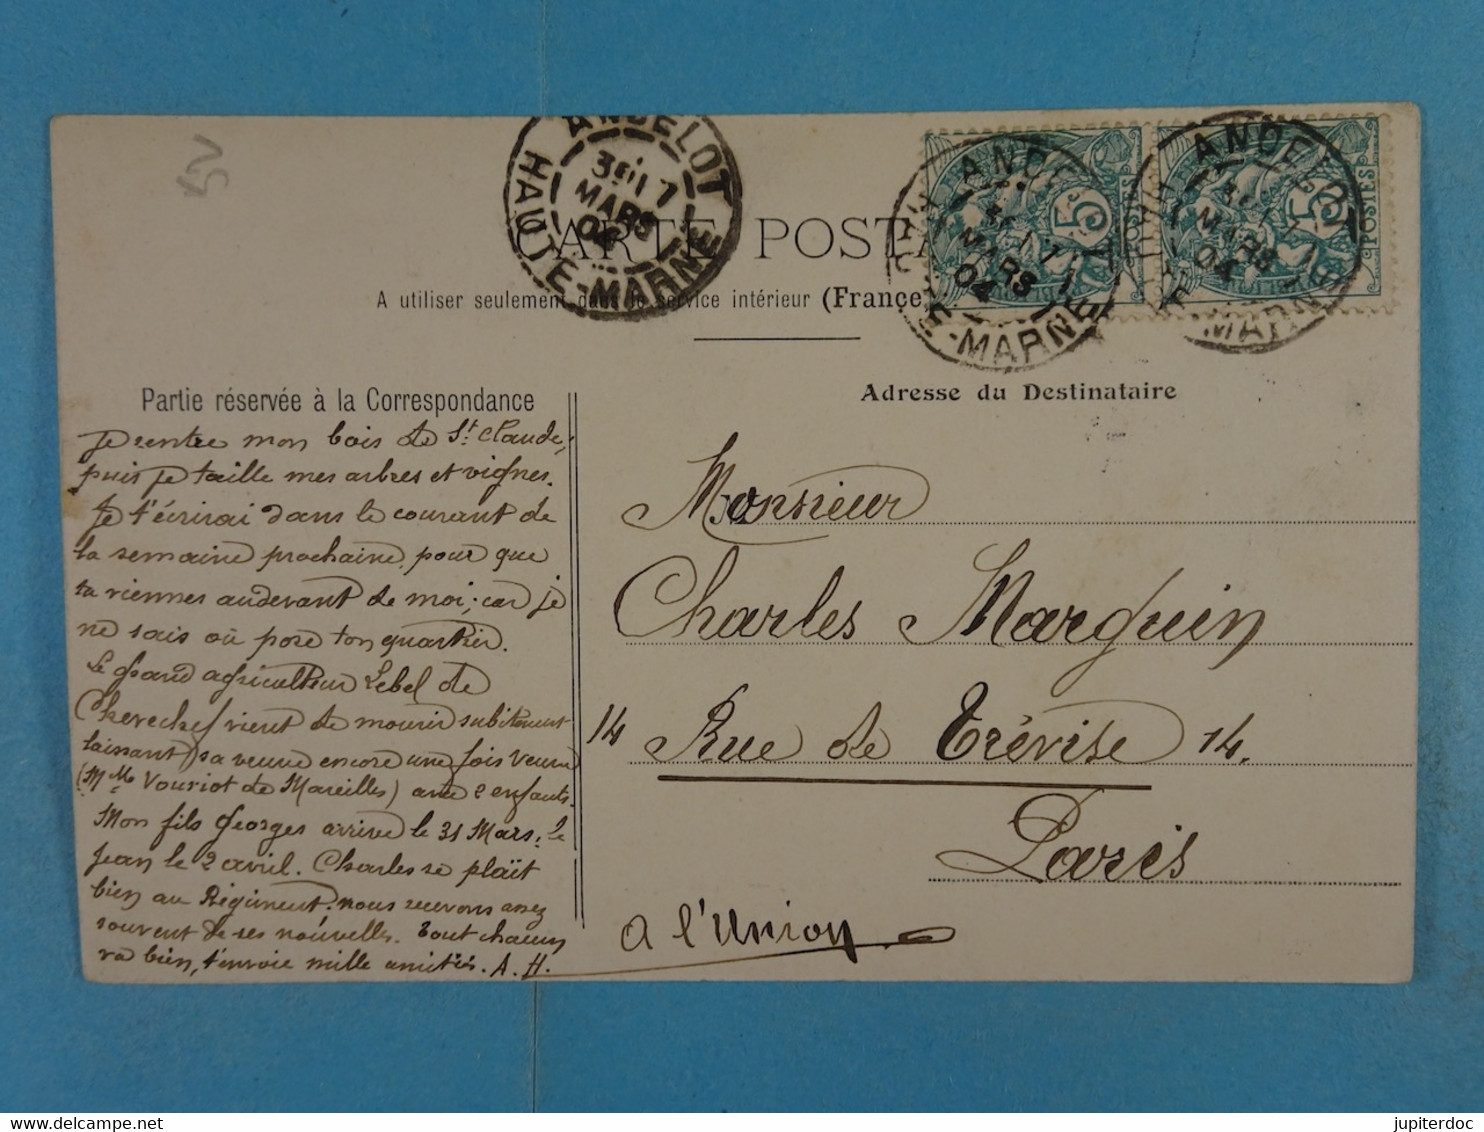 ANDELOT
HAUTE-MARNE
7
MARS
04
ANDELOT
HAUTE-MARNE
MARS
04
5
ANDELOT
HAUTE-MARNE
MARS
04
5
POSTES
CARTE POSTA
A utiliser seulement dans le service intérieur (France
Partie réservée à la Correspondance
Adresse du Destinataire
Je rentre mon bois de St Claude,
puis je taille mes arbres et vignes.
Je t'écrirai dans le courant de
la semaine prochaine, pour que
tu viennes audevant de moi; car je
ne sais où pose ton quartier.
Le grand agriculteur Lebel de
vient de mourir subitement
laissant sa veuve encore une fois veuve
(Mme Vouriot de Mareilles) avec 2 enfants.
Mon fils Georges arrive le 31 Mars, le
Jean le 2 avril. Charles se plaît
bien au Régiment. nous recevons assez
souvent de ses nouvelles. Tout chacun
va bien, t'envoie mille amitiés. A. H.
Monsieur
Charles Marguin
14 Rue de Trévise 14.
Paris
A l'Union
jupiterdoc